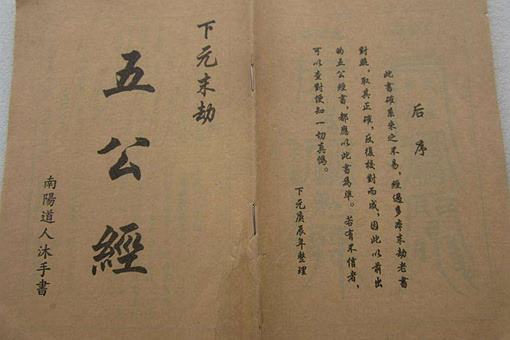 后序
此書確系来之不易,經過多本末劫老書
對照,取其正確,反復校對而成,因此以前出
的五公經書,都應以此書為準。若有不信者,
可以查對便知一切真偽。
下元庚辰年整理
下元末劫
五公經
南陽道人沐手書